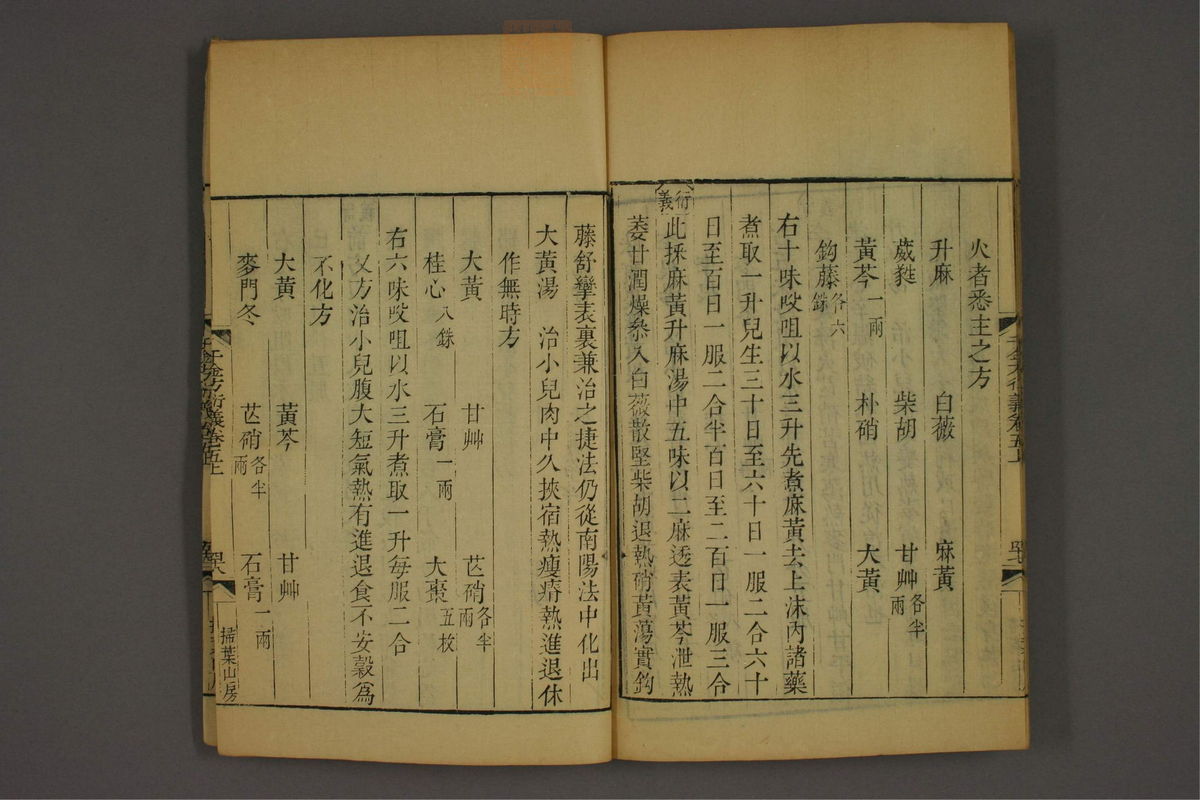 火者悉主之方
升麻 白薇 麻黃
葳甤 柴胡 甘艸各半兩
黃芩一兩 朴硝 大黃
鈎藤各六銖
右十味㕮咀以水三升先煮麻黃去上沫內諸藥
煮取一升兒生三十日至六十日一服二合六十
日至百日一服二合半百日至二百日一服三合
衍義
此採麻黃升麻湯中五味以二麻透表黃芩泄熱
萎甘潤燥叅入白薇散堅柴胡退熱硝黃蕩實鈎
藤舒攣表裏兼治之捷法仍從南陽法中化出
大黃湯 治小兒肉中久挾宿熱瘦瘠熱進退休
作無時方
大黃 甘艸 芒硝各半兩
桂心八銖 石膏一兩 大棗五枚
右六味㕮咀以水三升煮取一升每服二合
又方治小兒腹大短氣熱有進退食不安穀爲
不化方
大黃 黃芩 甘艸
麥門冬 芒硝各半兩 石膏一兩
千金方衍義卷五上
掃葉山房